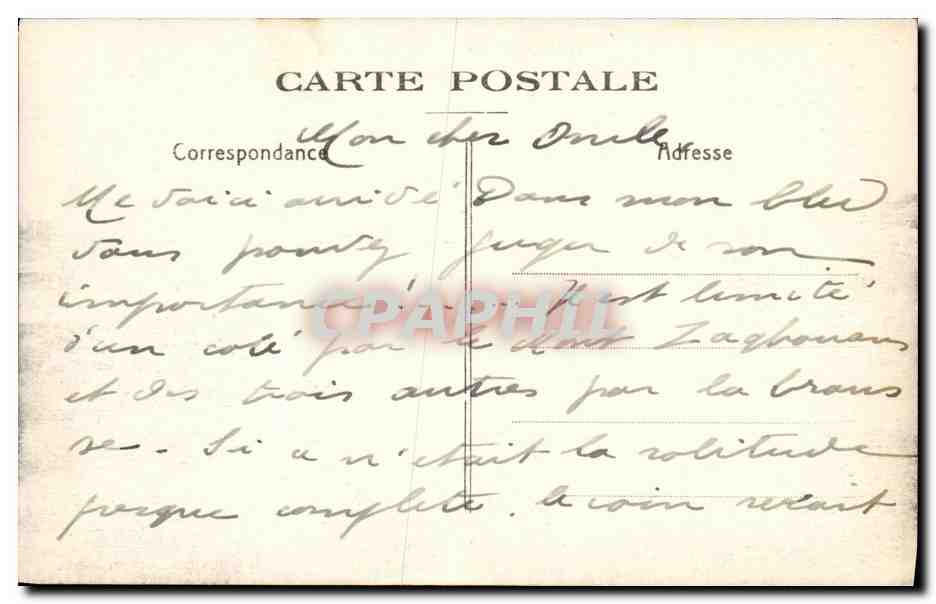 CARTE POSTALE
Mon cher Oncle
Correspondance
Adresse
Me voici arrivé Dans mon bled
vous pouvez juger de son
importance ! .... Il est limité
d'un coté par le Mont Zaghouans
et des trois autres par la brous
se. Si ce n'était la solitude
presque complete, le coin serait
CPAPHIL